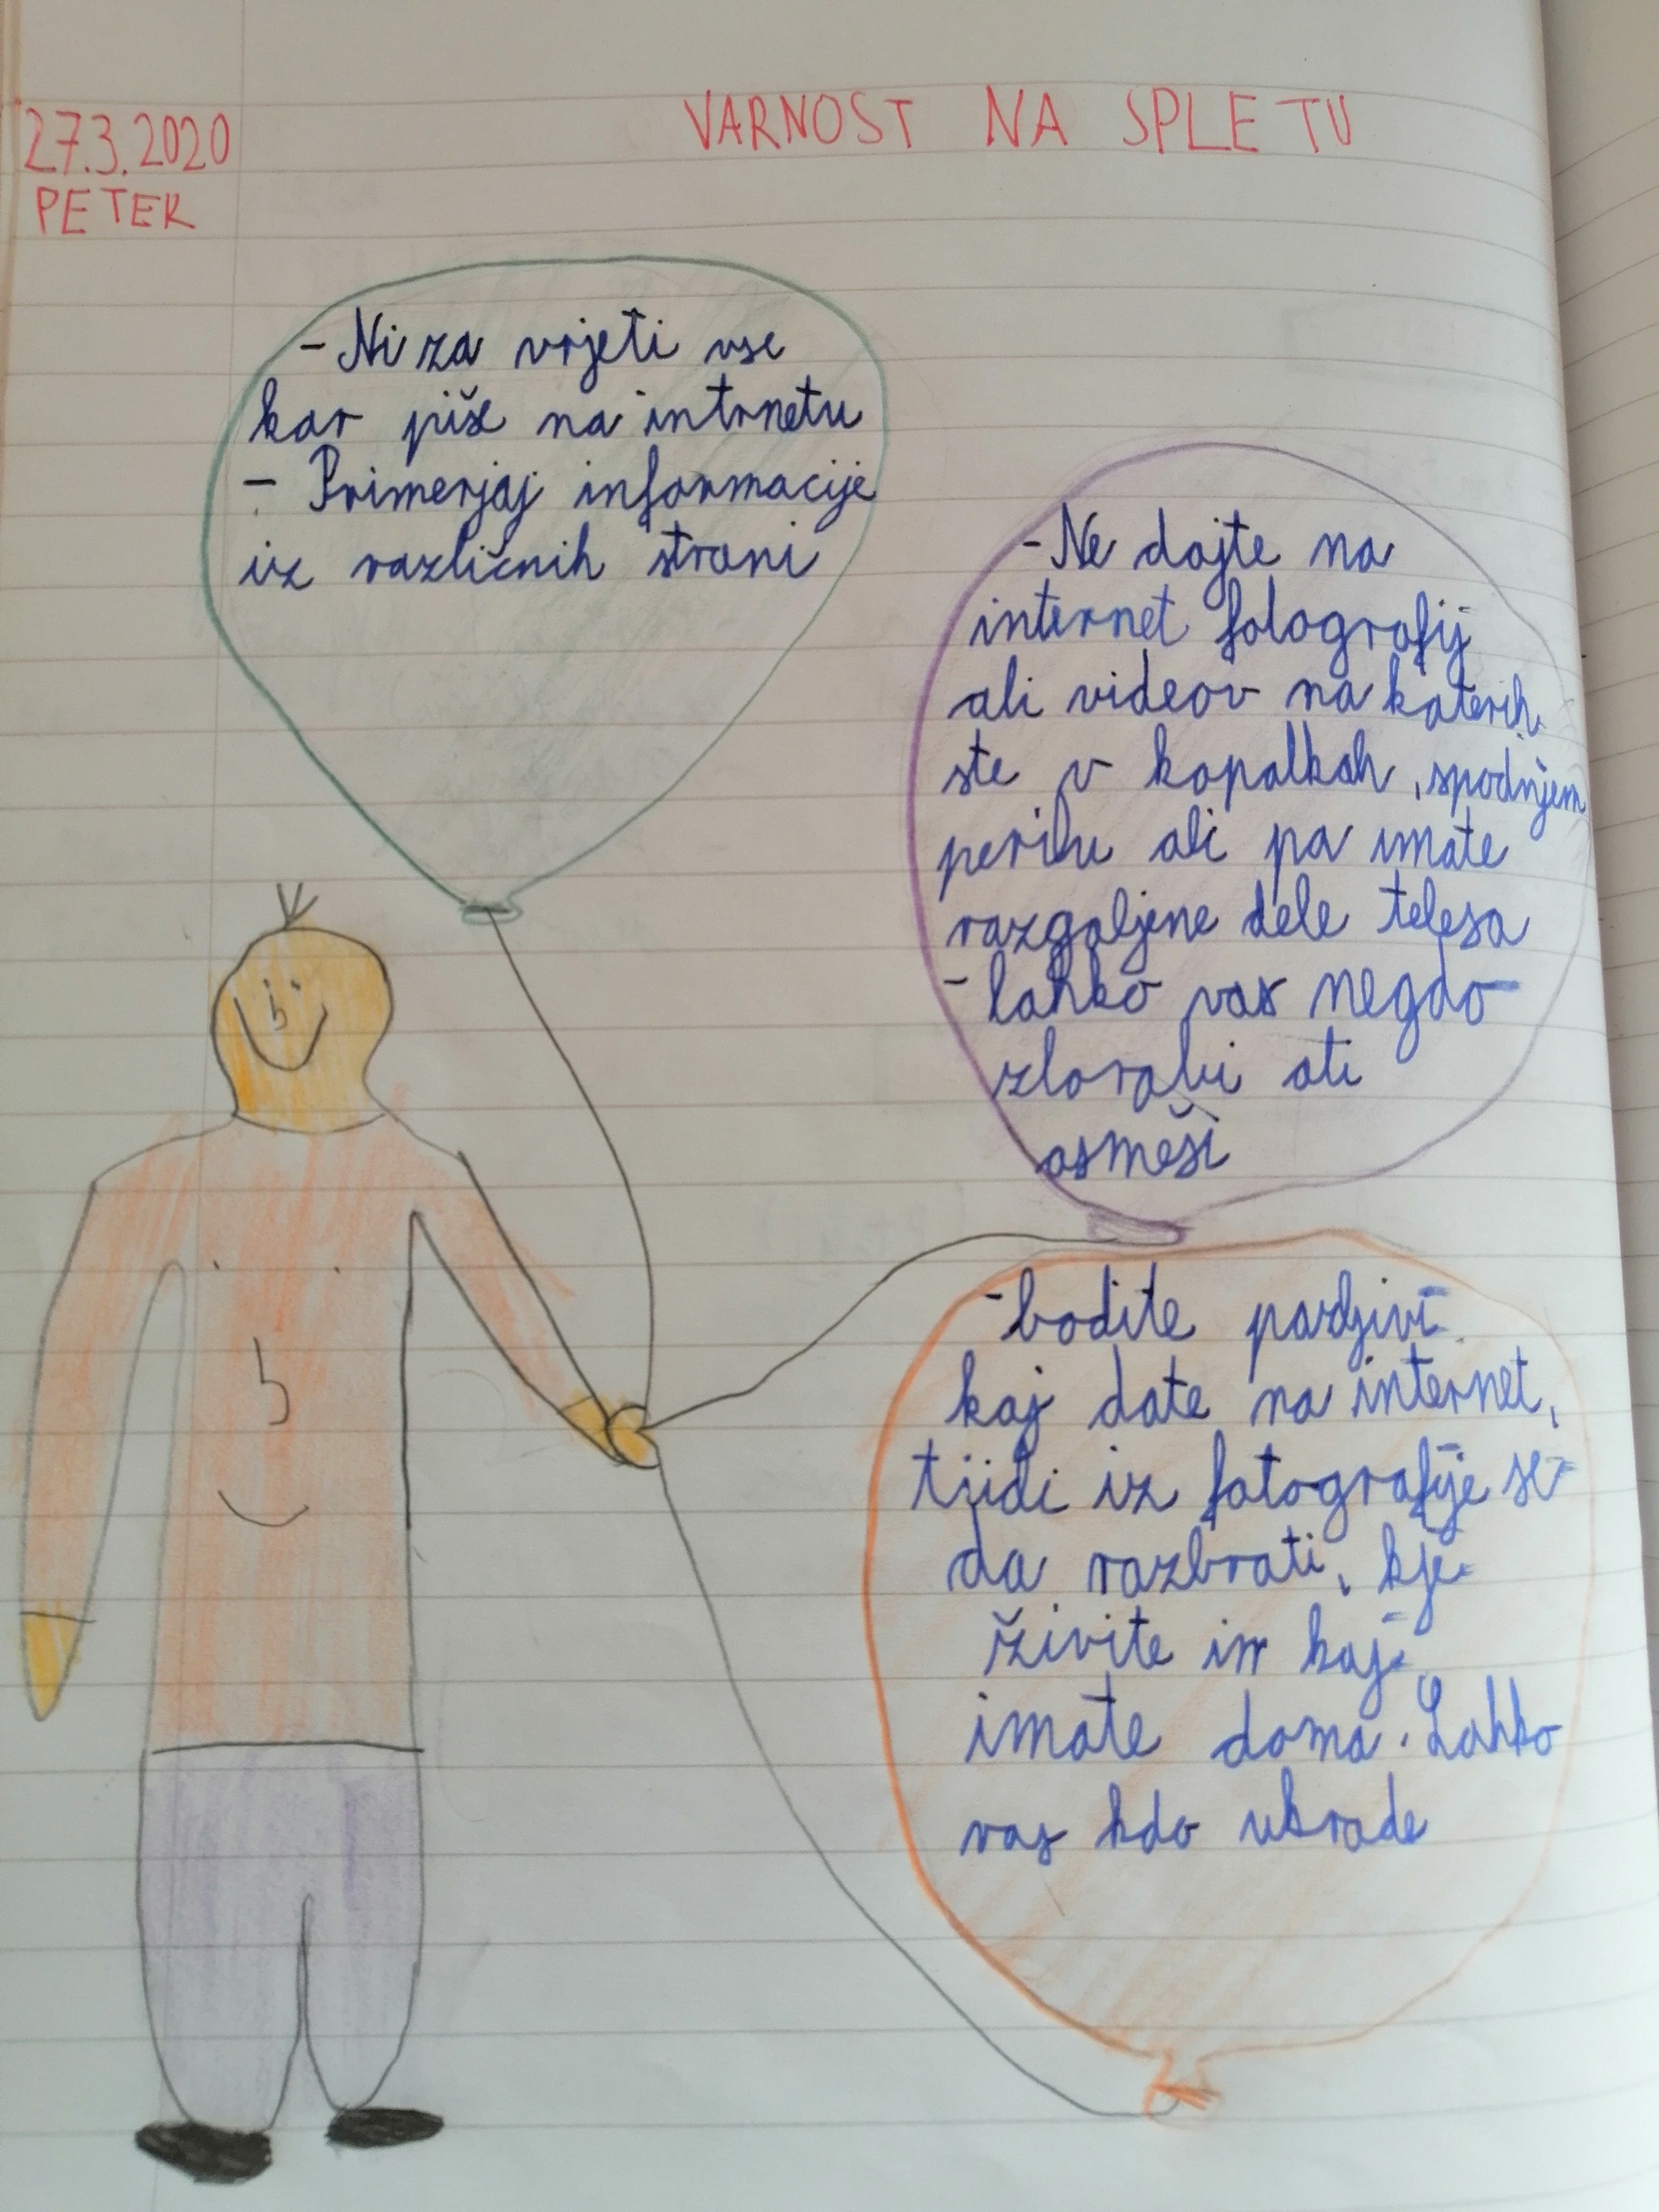 VARNOST NA SPLETU
27.3.2020
PETEK
- Ni za vrjeti vse
kar piše na intrnetu
- Primerjaj informacije
iz različnih strani
- Ne dajte na
internet fotografij
ali videov na katerih
ste v kopalkah, spodnjem
perilu ali pa imate
razgaljene dele telesa
- lahko vas negdo
zlorabi ali
osmeši
- bodite pazljivi
kaj date na internet,
tudi iz fotografije se
da razbrati, kje
živite in kaj
imate doma. Lahko
vas kdo ukrade